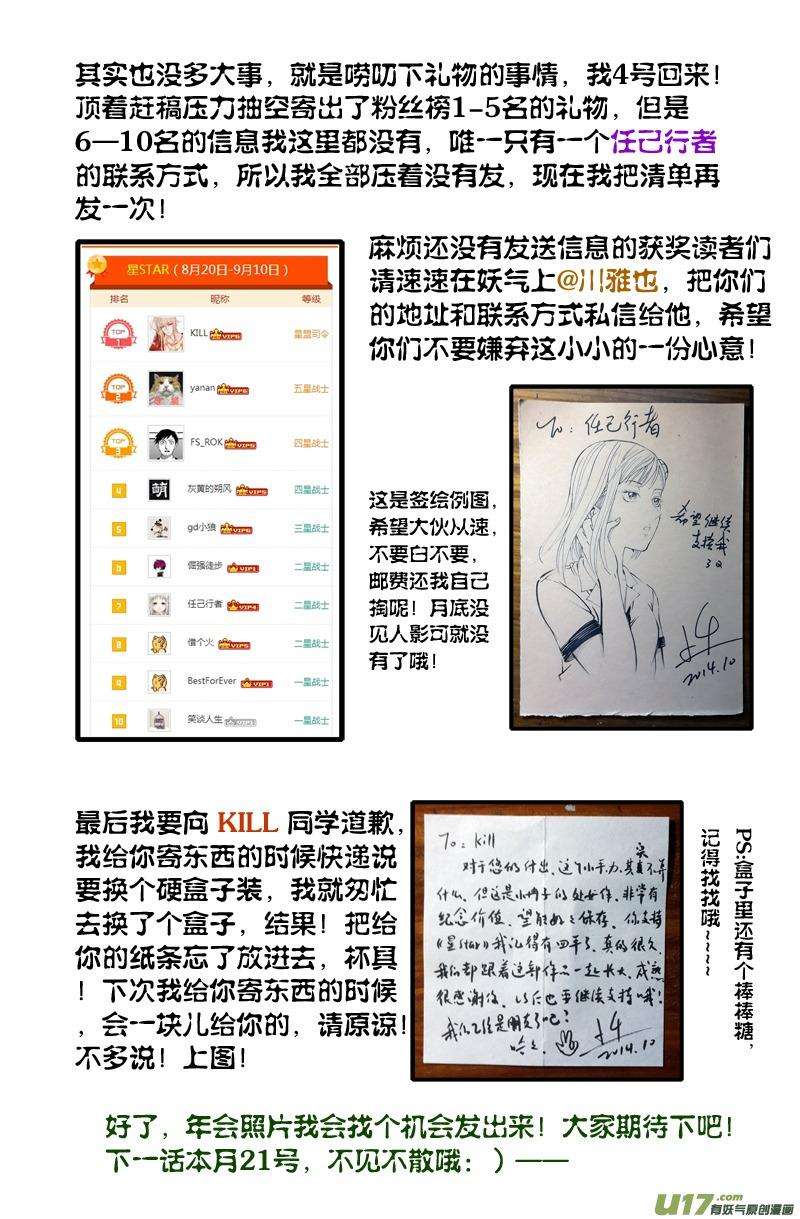 其实也没多大事，就是唠叨下礼物的事情，我4号回来！
顶着赶稿压力抽空寄出了粉丝榜1-5名的礼物，但是
6—10名的信息我这里都没有，唯一只有一个任己行者
的联系方式，所以我全部压着没有发，现在我把清单再
发一次！
麻烦还没有发送信息的获奖读者们
请速速在妖气上@川雅也，把你们
的地址和联系方式私信给他，希望
你们不要嫌弃这小小的一份心意！
星STAR（8月20日-9月10日）
排名 昵称 等级
TOP 1 KILL VIP6 星盟司令
TOP 2 yanan VIP6 五星战士
TOP 3 FS_ROK VIP6 四星战士
4 萌 灰黄的朔风 VIP5 四星战士
5 gd小狼 VIP6 三星战士
6 倔强徒步 VIP1 二星战士
7 任己行者 VIP4 二星战士
8 借个火 VIP5 二星战士
9 BestForEver VIP1 一星战士
10 笑谈人生 一星战士
这是签绘例图，
希望大伙从速，
不要白不要，
邮费还我自己
掏呢！月底没
见人影可就没
有了哦！
To：任己行者
希望继续
支持我
3Q
2014.10
最后我要向 KILL 同学道歉，
我给你寄东西的时候快递说
要换个硬盒子装，我就匆忙
去换了个盒子，结果！把给
你的纸条忘了放进去，杯具
！下次我给你寄东西的时候
，会一块儿给你的，请原谅！
不多说！上图！
To：kill
对于您的付出、这个小手办其实真不算
什么、但这是小博子的处女作、非常有
纪念价值、望能好好保存、你支持
《星star》我记得有四年了、真的很久、
我们都跟着这部作品一起长大、成熟
很感谢你、以后也要继续支持哦！
我们已经是朋友了吧？
哈哈、
2014.10
PS:盒子里还有个棒棒糖，
记得找找哦~~~~
好了，年会照片我会找个机会发出来！大家期待下吧！
下一话本月21号，不见不散哦：）——
U17.com
有妖气原创漫画